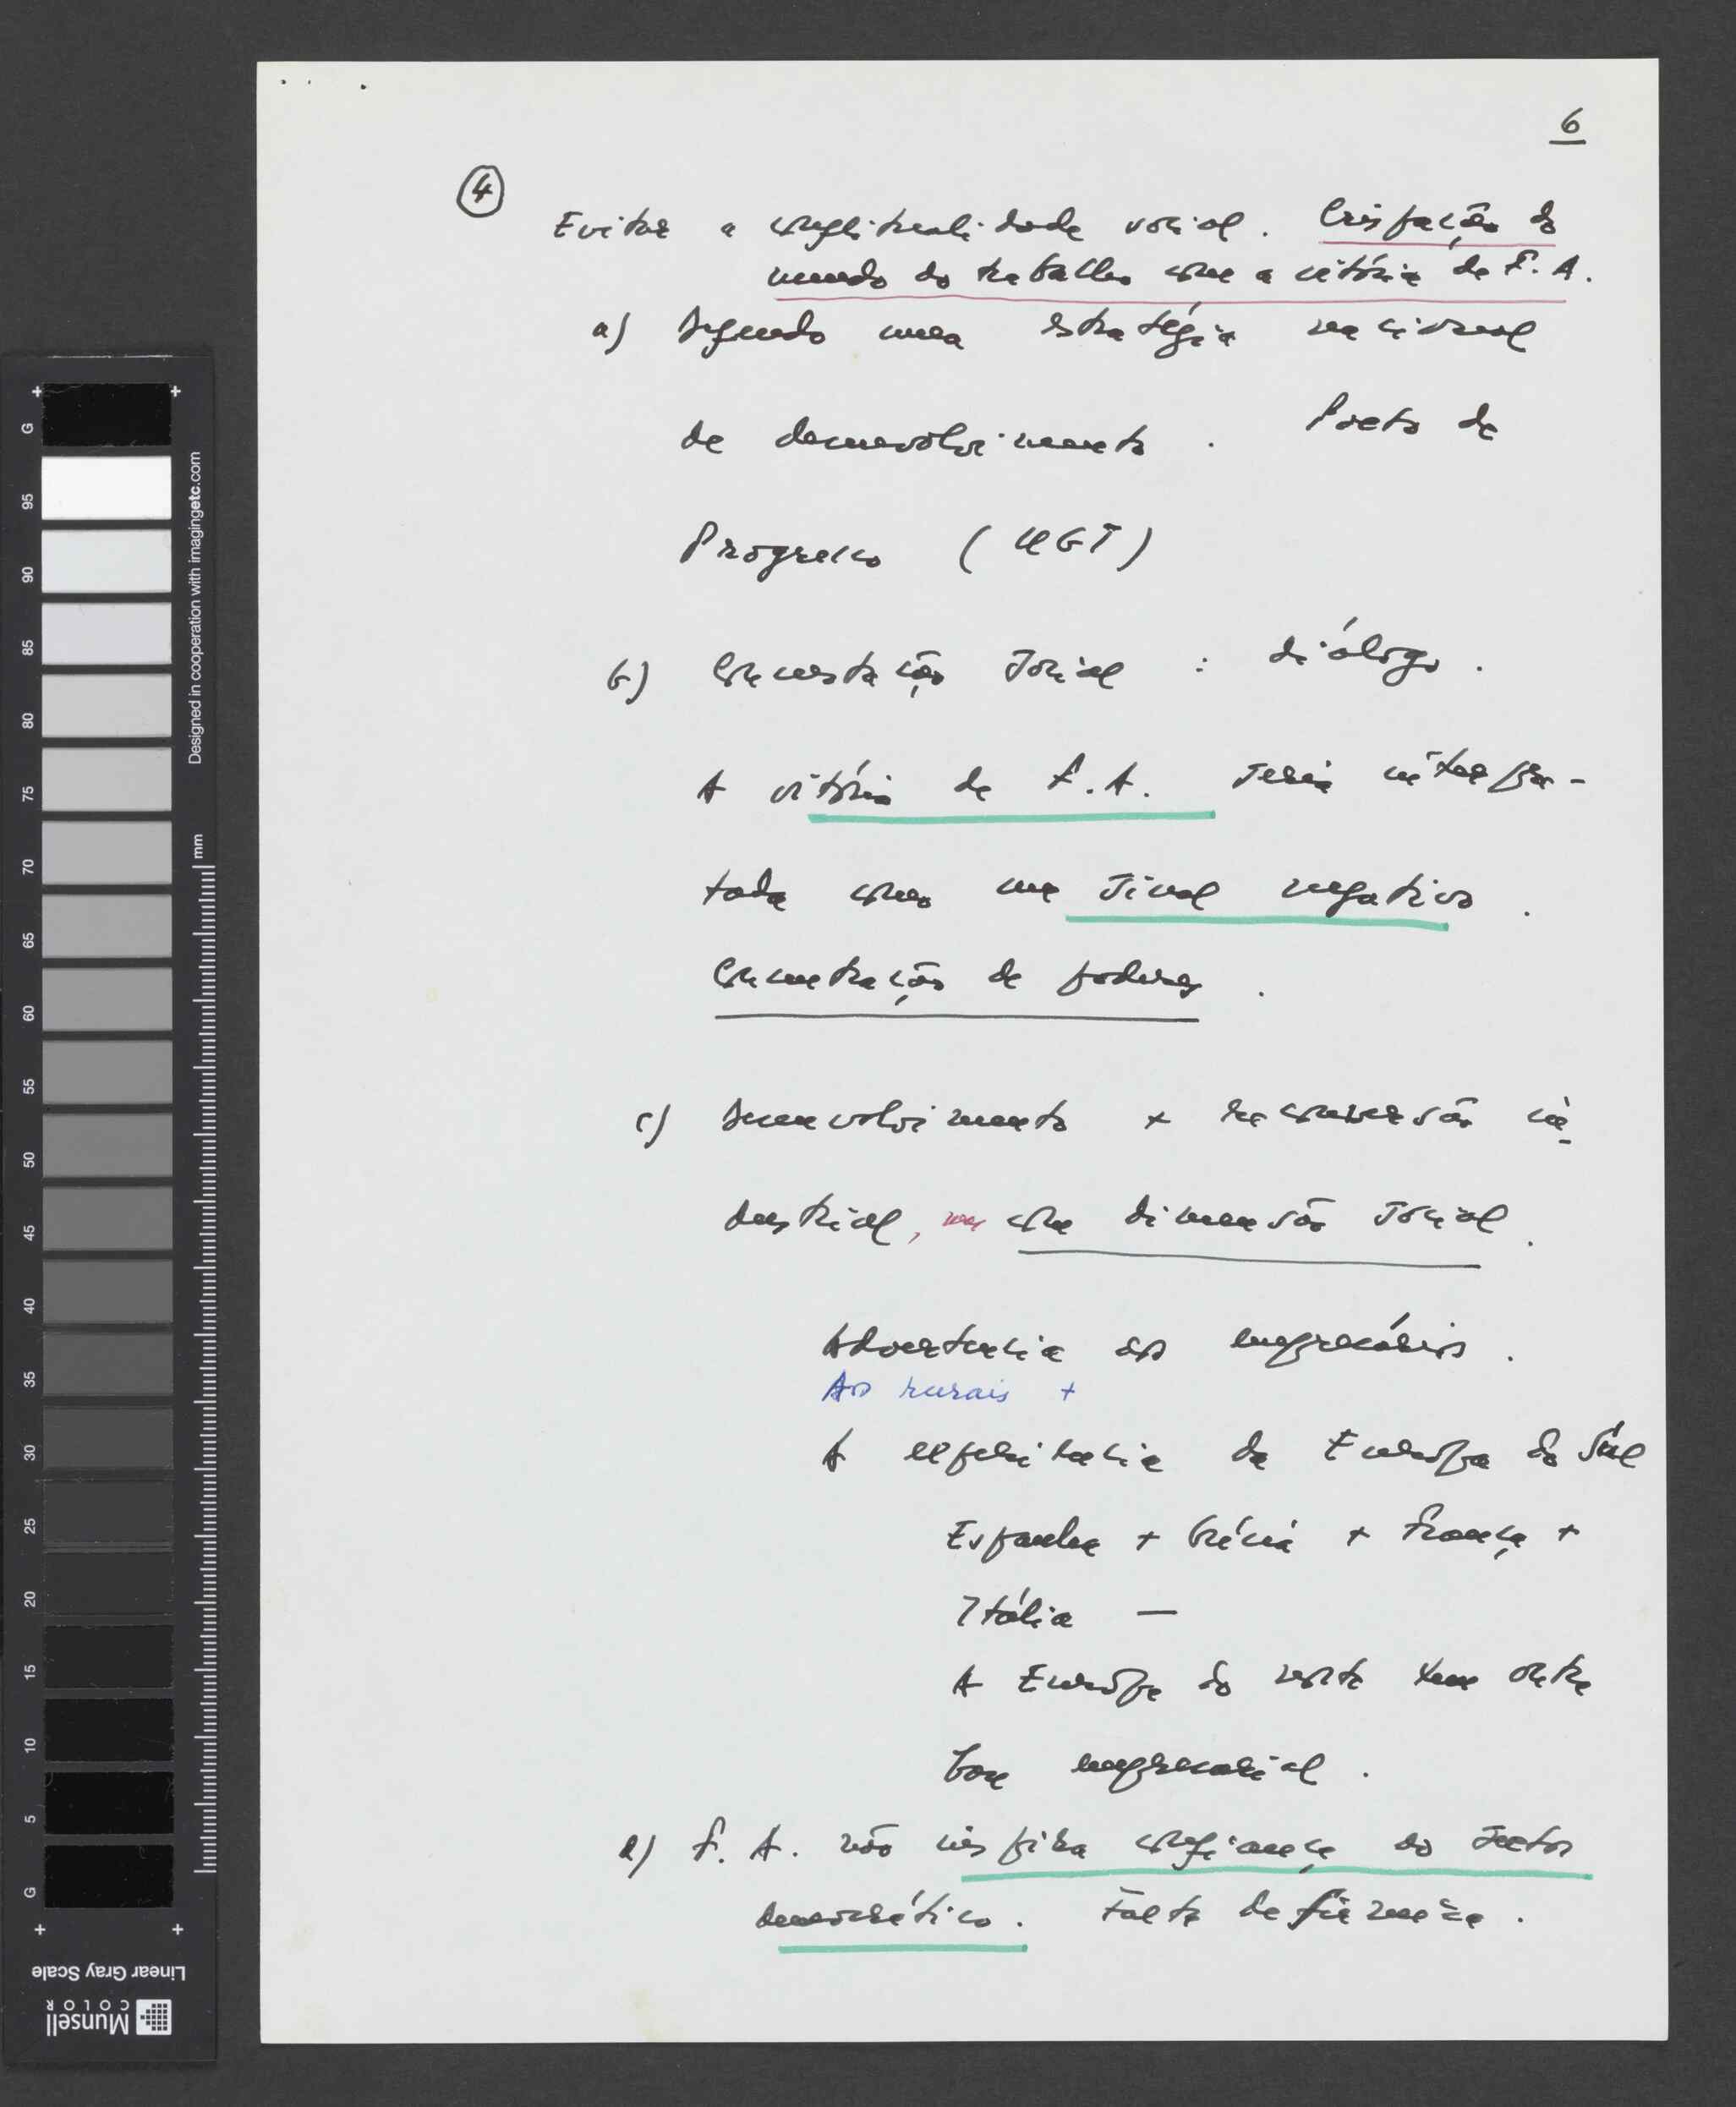 6
4
Evitar a conflitualidade social. Crispação do
mundo do trabalho com a vitória de F. A.
a) Segundo uma estratégia nacional
de desenvolvimento. Pacto de
Progresso (UGT)
b) Concertação Social : diálogo.
A vitória de F. A. seria interpre-
tada como um sinal negativo.
Concentração de poderes.
c) Desenvolvimento + reconversão in-
dustrial, mas com dimensão social.
Advertência aos empresários.
Aos rurais +
A experiência da Europa do Sul
Espanha + Grécia + França +
Itália —
A Europa do norte tem outra
base empresarial.
d) F. A. não inspira confiança ao sector
democrático. Falta de firmeza.
G 95 90 85 80 75 70 65 60 55 50 45 40 35 30 25 20 15 10 5 G
Designed in cooperation with imagingetc.com
mm
Linear Gray Scale
Munsell
COLOR